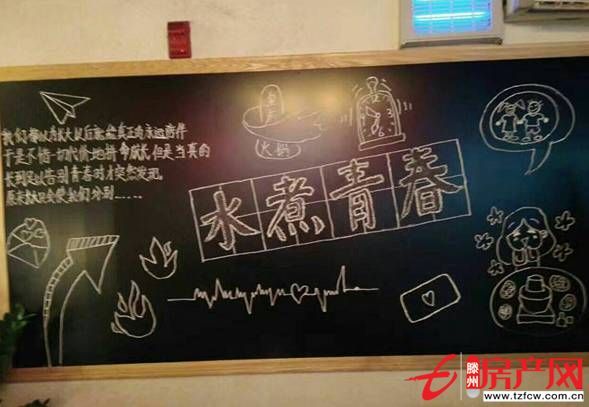 我们都以为长大以后就能真正的永远陪伴
于是不惜一切代价地拼命成长,但是当真的
长到足以告别青春时才突然发现,
原来长大只会使我们分别……
火锅
水煮青春
滕州
房产网
www.tzfcw.com.cn